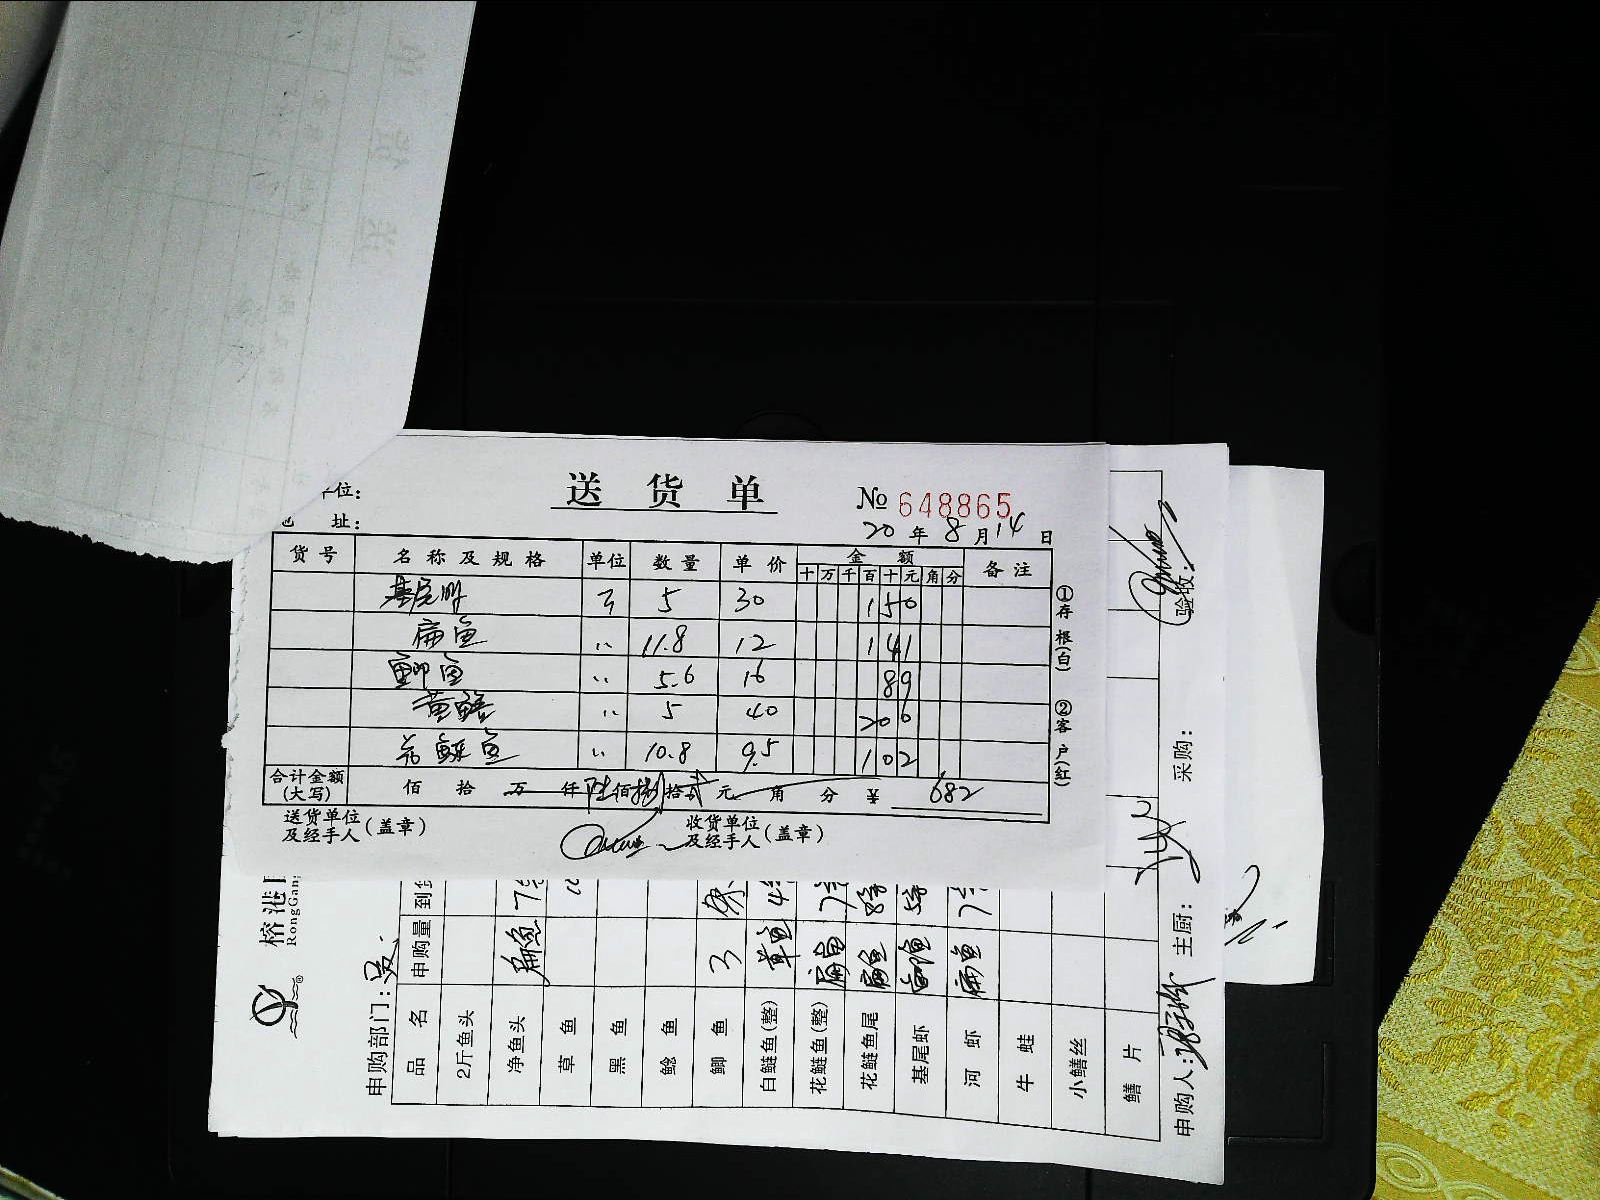 位：
送 货 单
№ 648865
址：
20 年 8 月 14 日
货号 名称及规格 单位 数量 单价 金额 备注
十 万 千 百 十 元 角 分
基尾虾 斤 5 30 150
扁鱼 〃 11.8 12 141
鲫鱼 〃 5.6 16 89
黄鳝 〃 5 40 200
花鲢鱼 〃 10.8 9.5 102
合计金额(大写) 佰 拾 万 仟 陆 佰 捌 拾 贰 元 角 分 ￥ 682
送货单位及经手人(盖章) 收货单位及经手人(盖章)
①存根(白) ②客户(红)
榕港
RongGang
申购部门：
品名 申购量
2斤鱼头
净鱼头
草鱼
黑鱼
鲶鱼
鲫鱼 3
白鲢鱼(整) 草鱼
花鲢鱼(整) 扁鱼
花鲢鱼尾 扁鱼
基尾虾
河虾 扁鱼
牛蛙
小鳝丝
鳝片
申购人： 主厨： 采购： 验收：